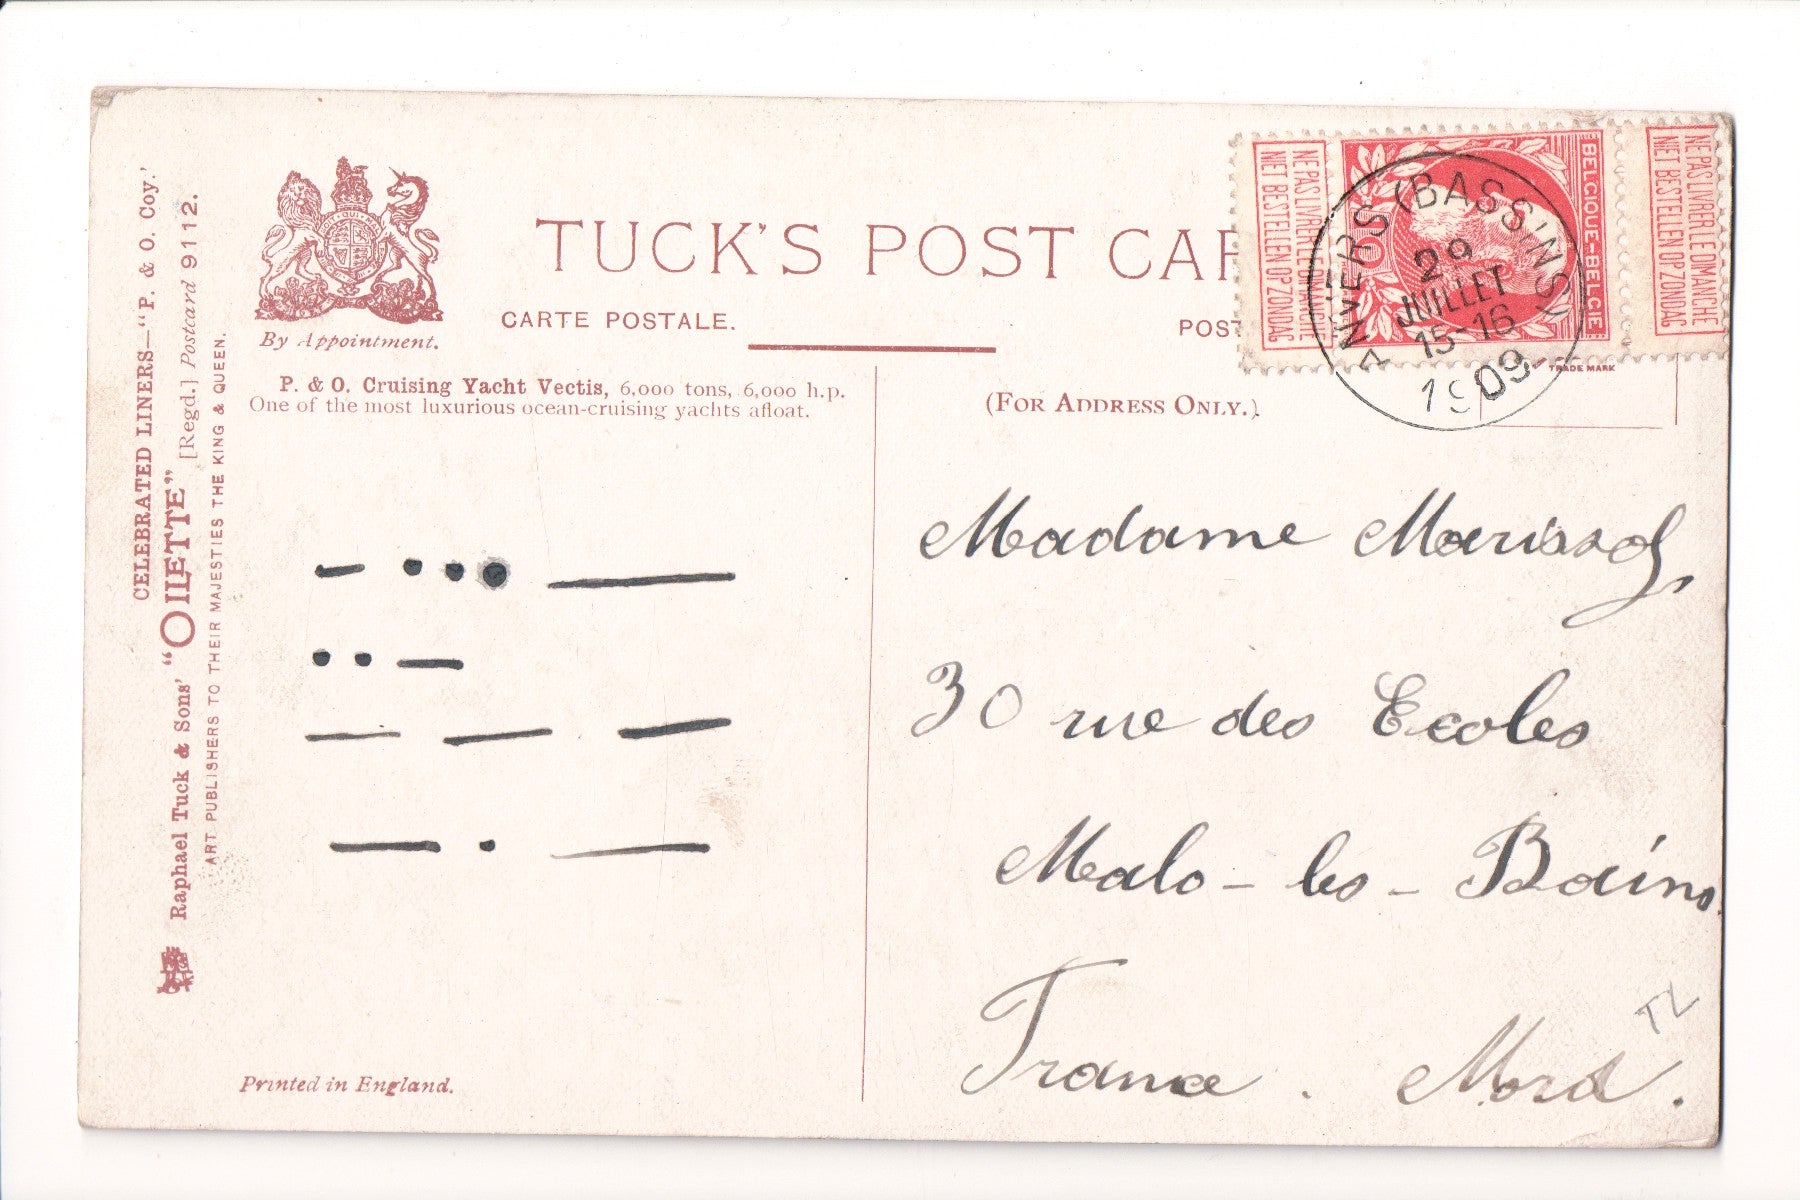 CELEBRATED LINERS—"P. & O. Coy.'
Raphael Tuck & Sons' "OILETTE" [Regd.] Postcard 9112.
ART PUBLISHERS TO THEIR MAJESTIES THE KING & QUEEN.
By Appointment.
TUCK'S POST CAR
CARTE POSTALE.
POST
P. & O. Cruising Yacht Vectis, 6,000 tons, 6,000 h.p.
One of the most luxurious ocean-cruising yachts afloat.
— • • • —
• • —
— — —
— • —
Printed in England.
NE PAS LIVRER LE DIMANCHE
NIET BESTELLEN OP ZONDAG
BELGIQUE-BELGIE
10
NE PAS LIVRER LE DIMANCHE
NIET BESTELLEN OP ZONDAG
ANVERS (BASSINS)
29
JUILLET
15-16
1909
TRADE MARK
(FOR ADDRESS ONLY.)
Madame
30 rue des Ecoles
Malo-les-Bains
France. Nord.
TL